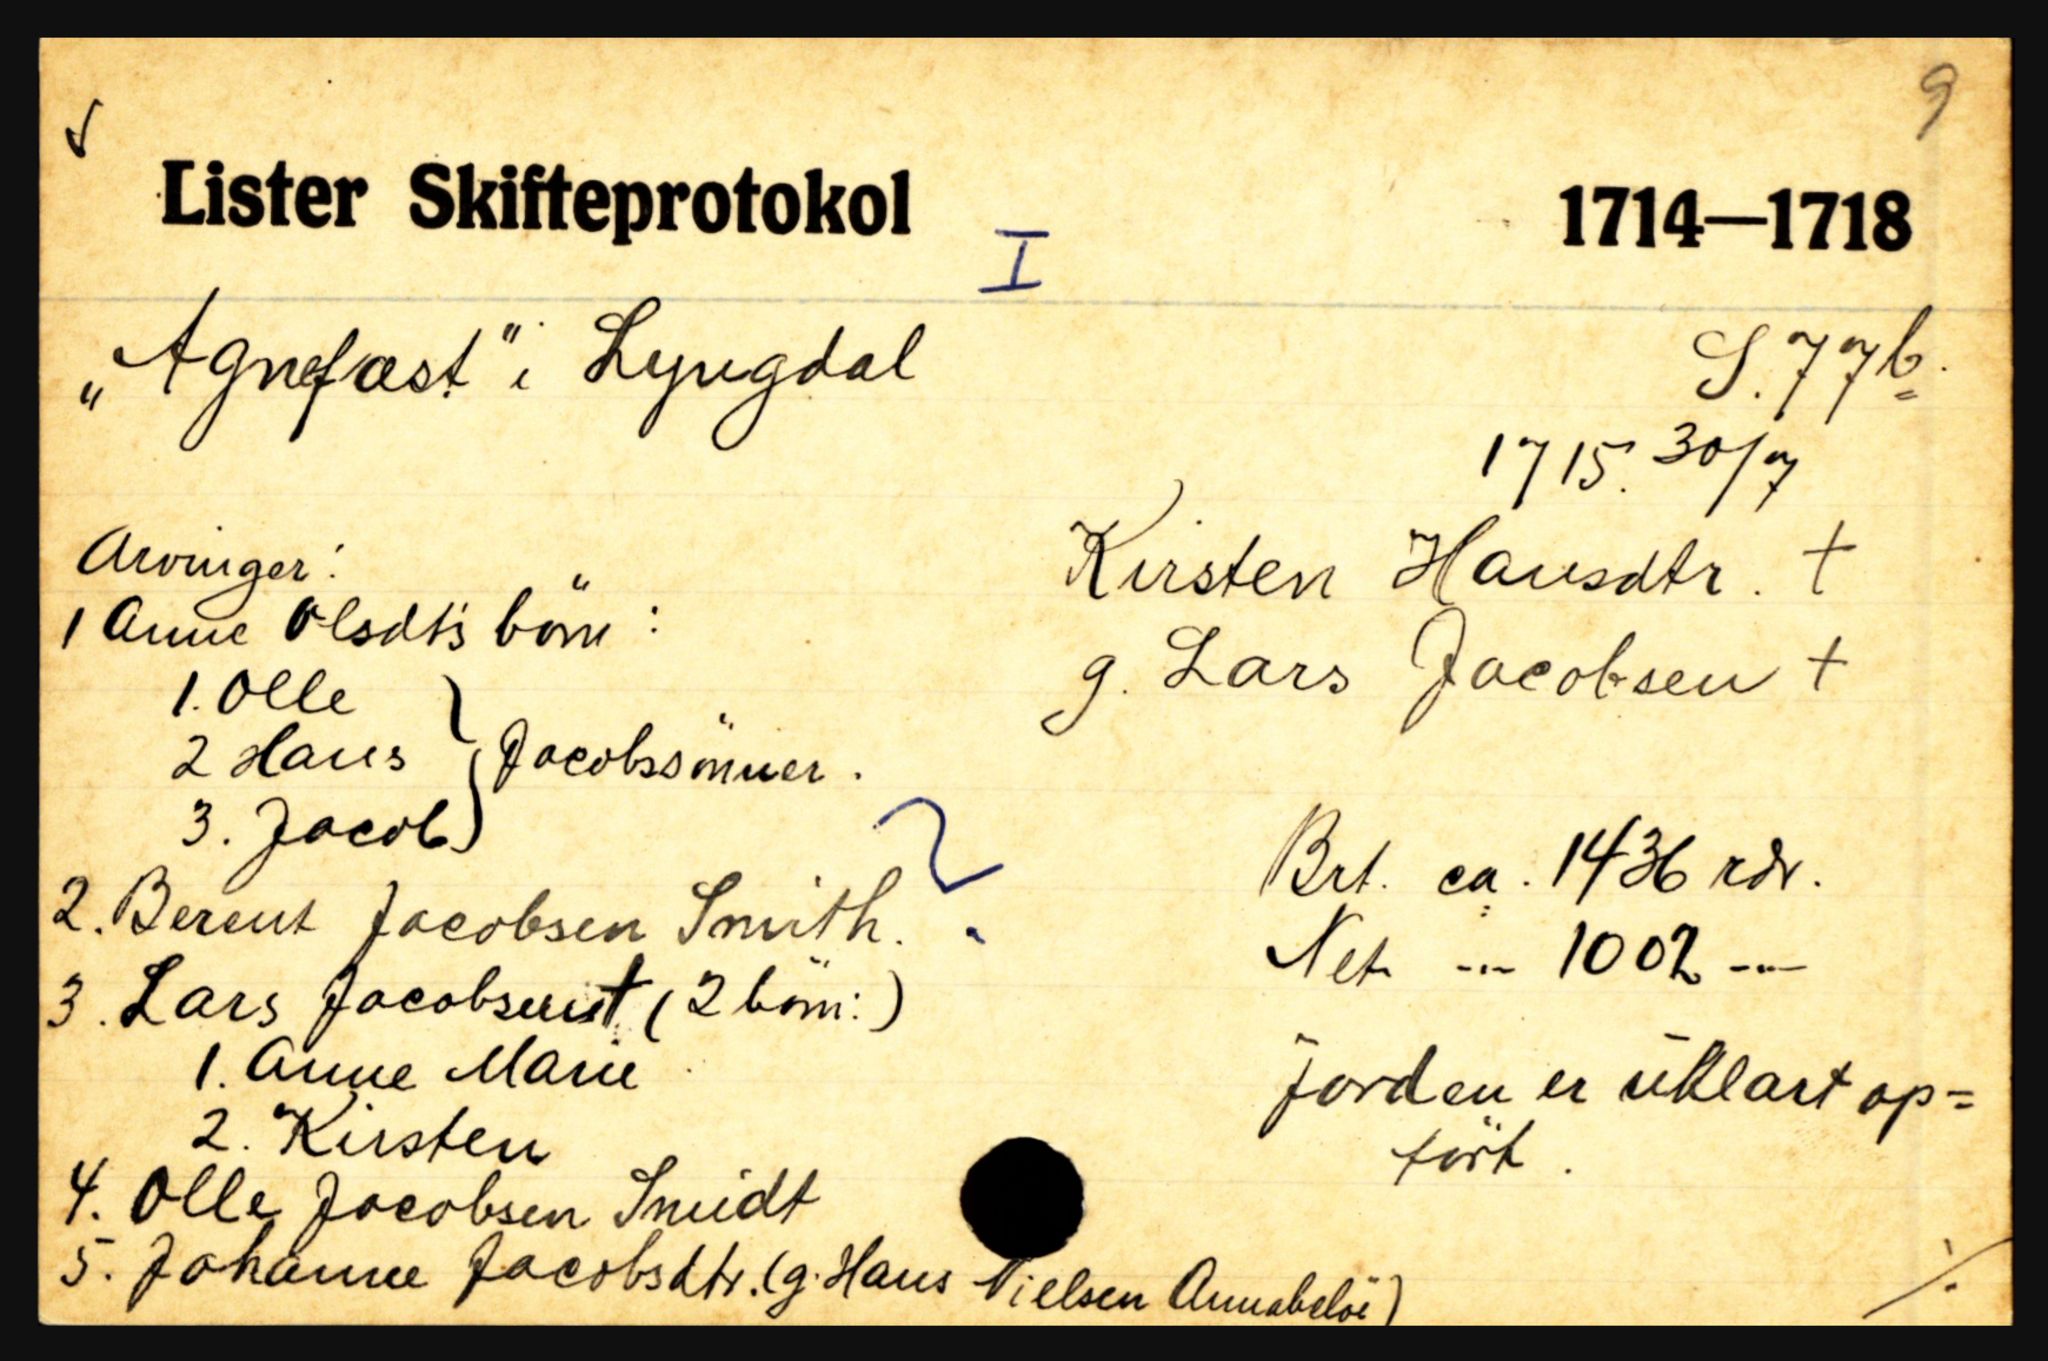 9
Lister Skifteprotokol 1714—1718
I
„Agnefæst" i Lyngdal
S. 77b.
1715. 30/7
Kirsten Hansdtr. +
g. Lars Jacobsen +
Arvinger:
1 Anne Olsdt's börn:
1. Olle
2 Hans } Jacobssönner.
3. Jacob
2. Berent Jacobsen Smith. ?
3. Lars Jacobsen + (2 börn:)
1. Anne Marie
2. Kirsten
4. Olle Jacobsen Smidt
5. Johanne Jacobsdtr. (g. Hans Nielsen Annabelöe)
Brt. ca. 1436 rdr.
Net. --- 1002 ---
Jorden er uklart op=
fört.
./.